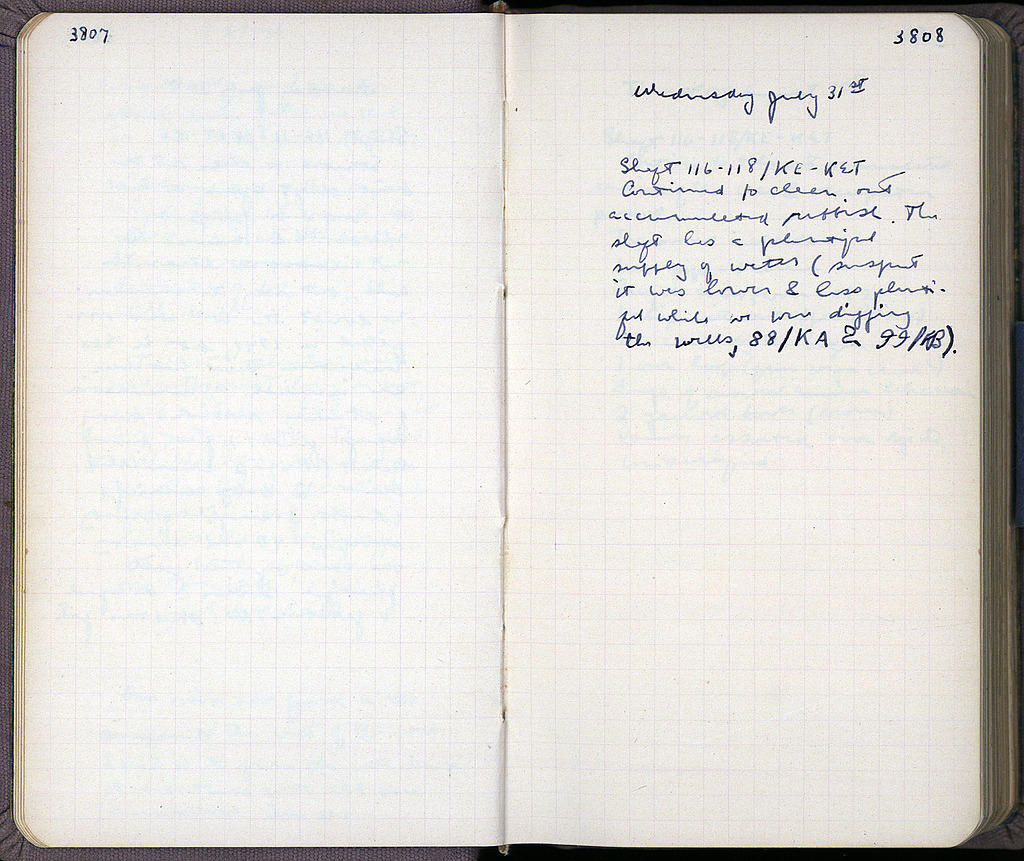 3807
3808
Wednesday July 31st
Shaft 116-118/KE-KET
Continued to clean out
accumulated rubbish. The
shaft has a plentiful
supply of water (suspect
it was lower & less plenti-
ful while we were digging
the wells, 88/KA & 99/KB).